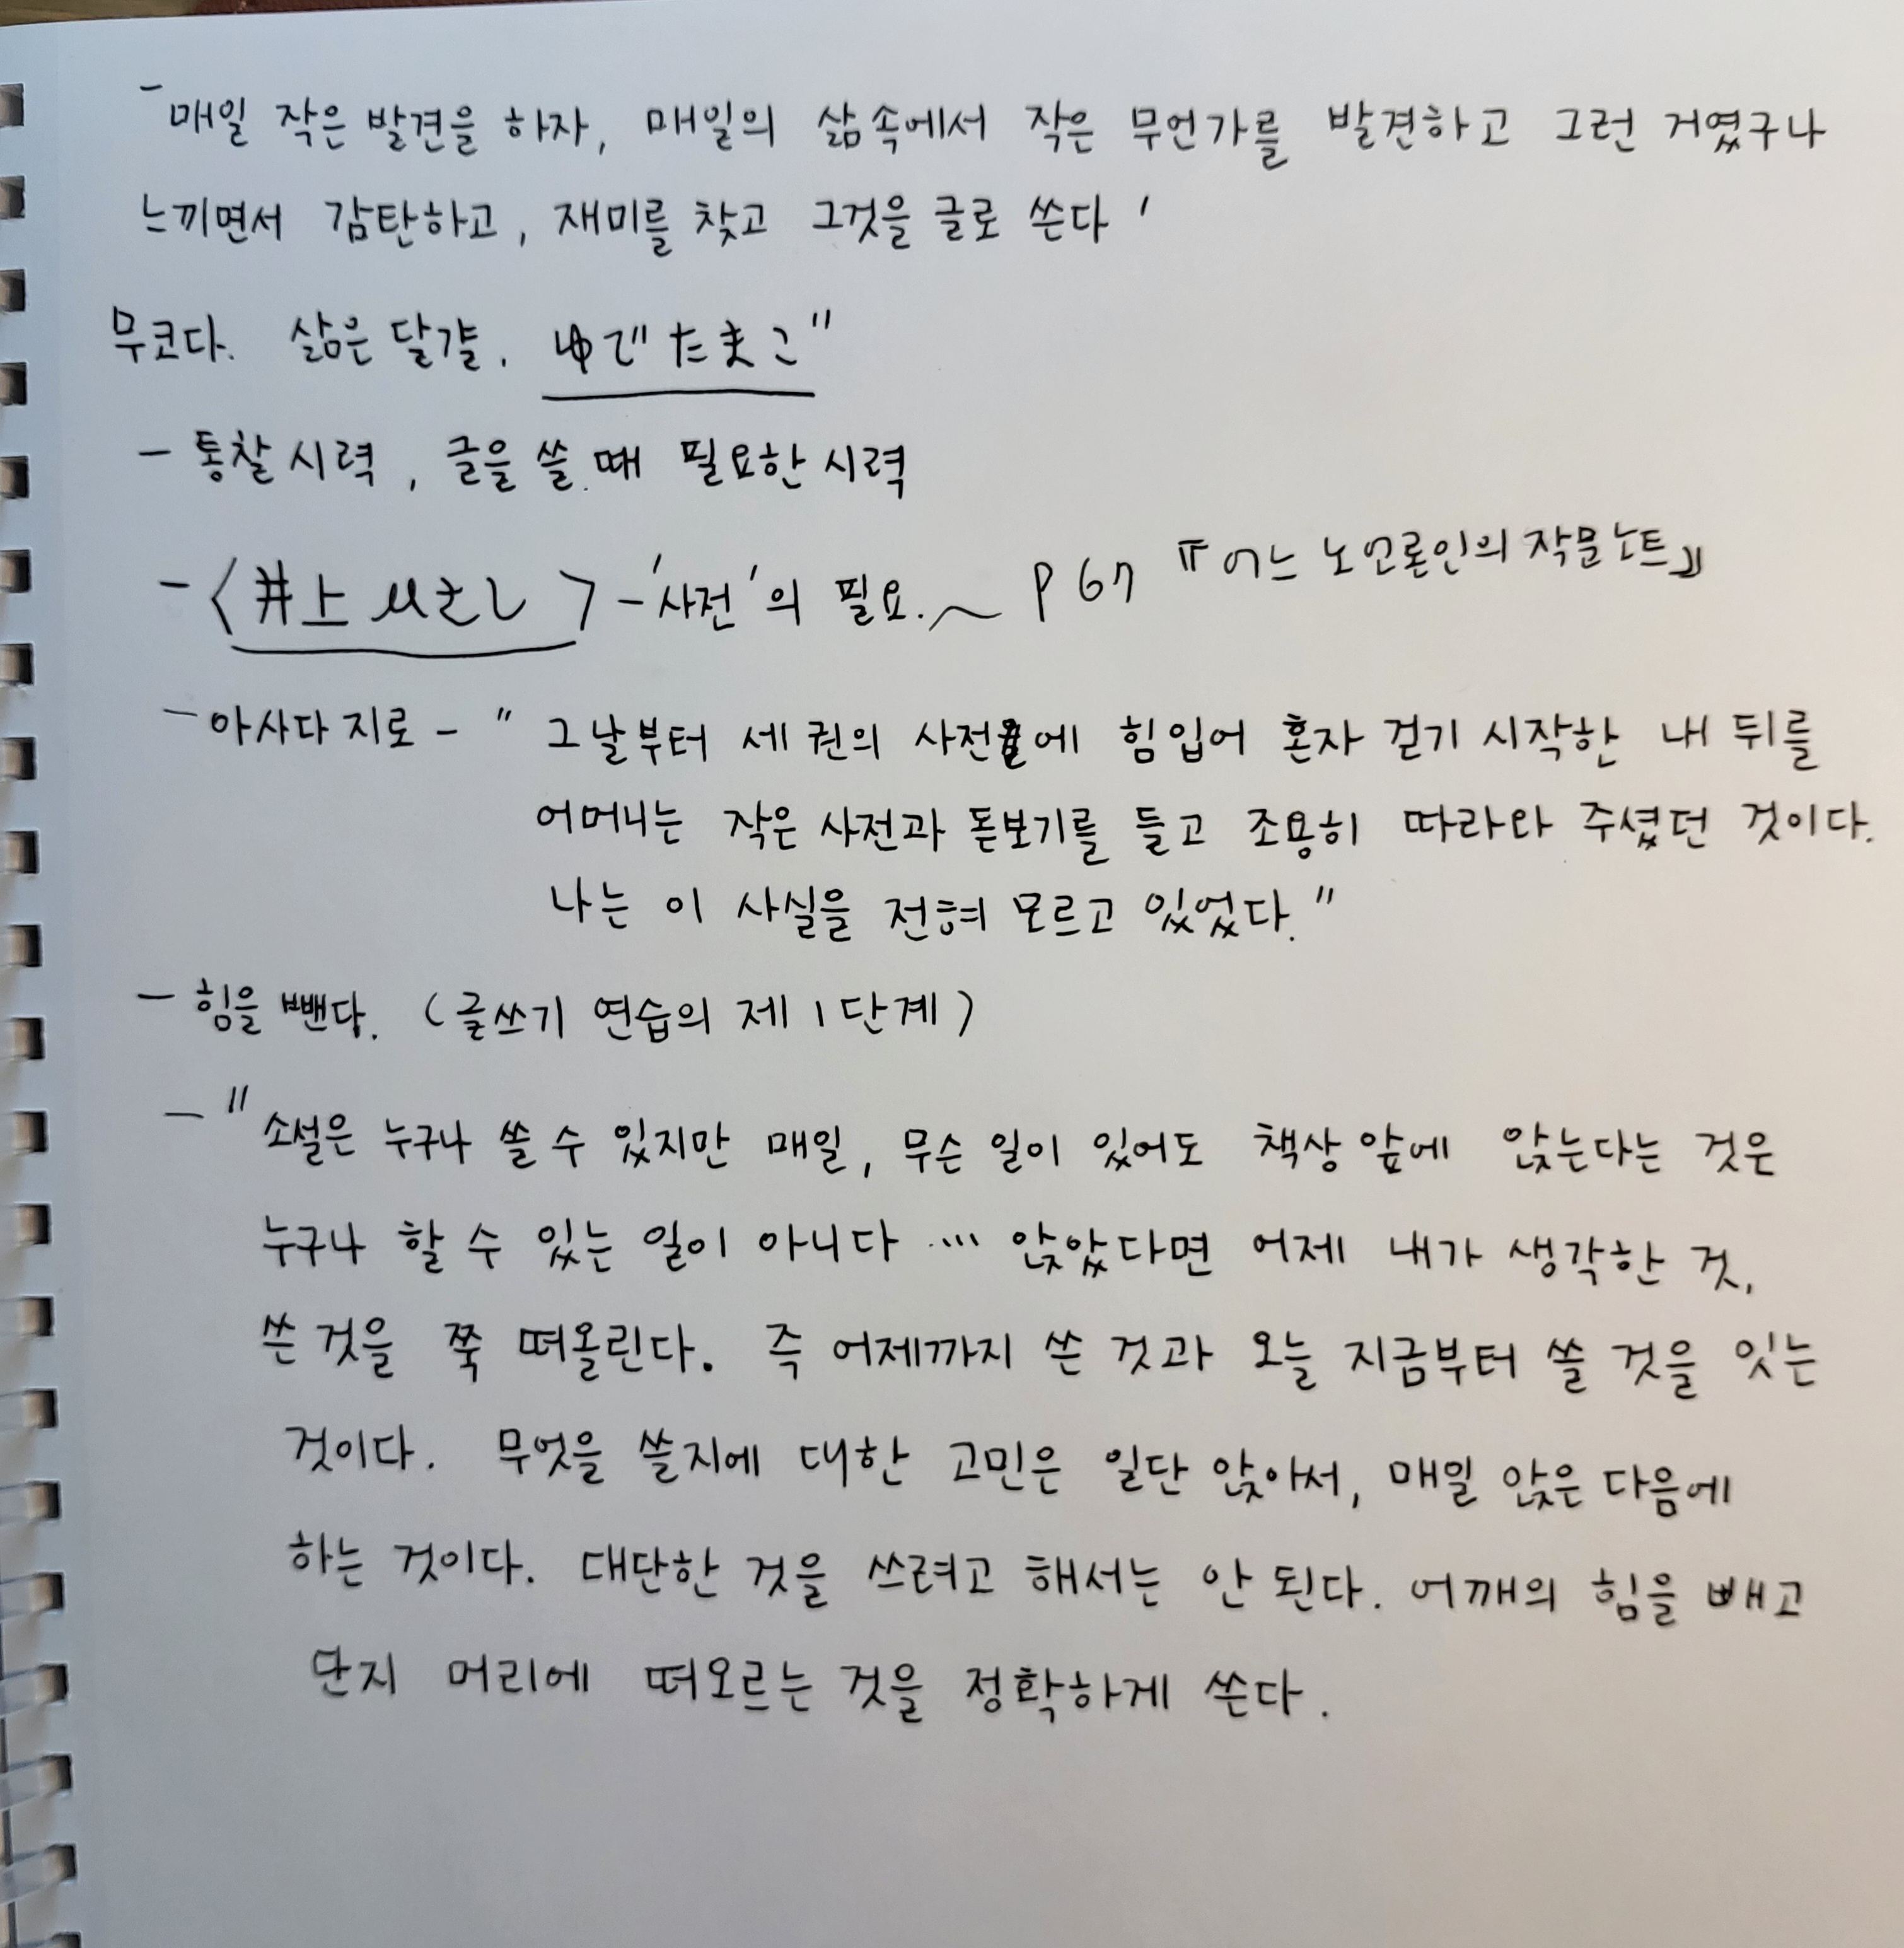 - 매일 작은 발견을 하자, 매일의 삶속에서 작은 무언가를 발견하고 그런 거였구나
느끼면서 감탄하고, 재미를 찾고 그것을 글로 쓴다 '
무코다. 삶은 달걀. ゆでたまこ"
- 통찰 시력, 글을 쓸 때 필요한 시력
- <井上 ひさし> - '사전'의 필요. ~ P 67 『어느 노언론인의 작문노트』
- 아사다 지로 - " 그날부터 세 권의 사전에 힘입어 혼자 걷기 시작한 내 뒤를
어머니는 작은 사전과 돋보기를 들고 조용히 따라와 주셨던 것이다.
나는 이 사실을 전혀 모르고 있었다."
- 힘을 뺀다. (글쓰기 연습의 제 1 단계)
- " 소설은 누구나 쓸 수 있지만 매일, 무슨 일이 있어도 책상 앞에 앉는다는 것은
누구나 할 수 있는 일이 아니다 … 앉았다면 어제 내가 생각한 것,
쓴 것을 쭉 떠올린다. 즉 어제까지 쓴 것과 오늘 지금부터 쓸 것을 잇는
것이다. 무엇을 쓸지에 대한 고민은 일단 앉아서, 매일 앉은 다음에
하는 것이다. 대단한 것을 쓰려고 해서는 안 된다. 어깨의 힘을 빼고
단지 머리에 떠오르는 것을 정확하게 쓴다.